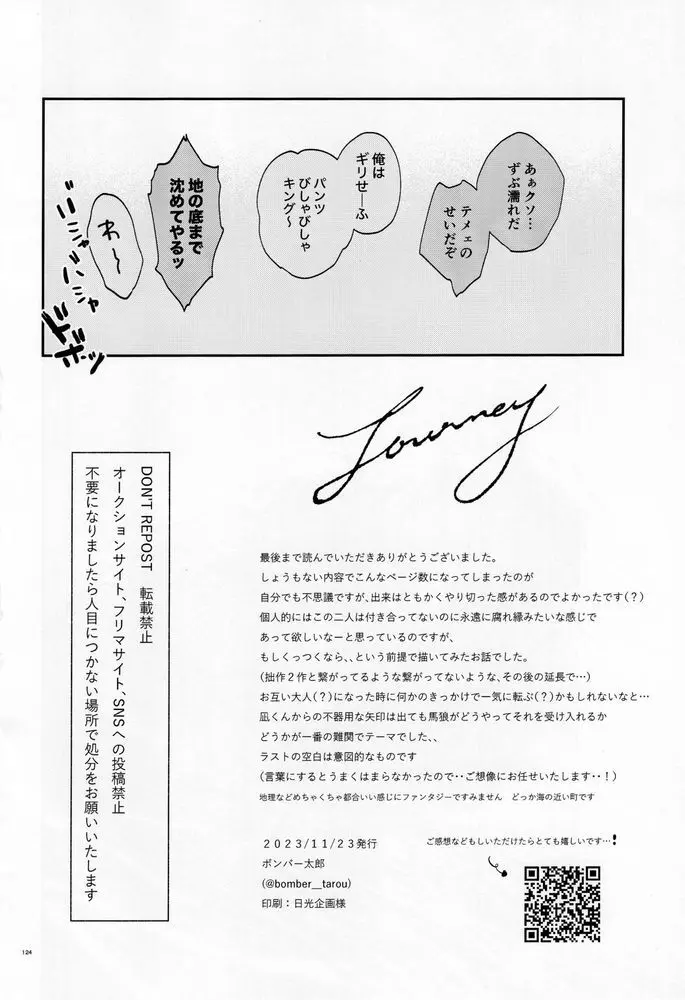 あぁクソ…
ずぶ濡れだ
テメェの
せいだぞ
俺は
ギリせーふ
パンツ
びしゃびしゃ
キング〜
地の底まで
沈めてやるッ
わ〜
バシャバシャ
ドボッ
Journey
最後まで読んでいただきありがとうございました。
しょうもない内容でこんなページ数になってしまったのが
自分でも不思議ですが、出来はともかくやり切った感があるのでよかったです(？)
個人的にはこの二人は付き合ってないのに永遠に腐れ縁みたいな感じで
あって欲しいなーと思っているのですが、
もしくっつくなら、、という前提で描いてみたお話でした。
(拙作２作と繋がってるような繋がってないような、その後の延長で…)
お互い大人(？)になった時に何かのきっかけで一気に転ぶ(？)かもしれないなと…
凪くんからの不器用な矢印は出ても馬狼がどうやってそれを受け入れるか
どうかが一番の難関でテーマでした、、
ラストの空白は意図的なものです
(言葉にするとうまくはまらなかったので・・ご想像にお任せいたします・・！)
地理などめちゃくちゃ都合いい感じにファンタジーですみません　どっか海の近い町です
２０２３/１１/２３発行
ボンバー太郎
(@bomber__tarou)
印刷：日光企画様
ご感想などもしいただけたらとても嬉しいです…！
DON'T REPOST　転載禁止
オークションサイト、フリマサイト、SNSへの投稿禁止
不要になりましたら人目につかない場所で処分をお願いいたします
124